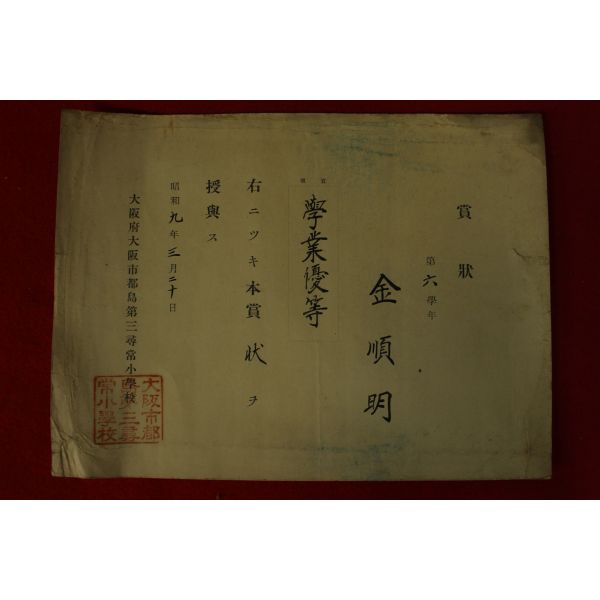 賞狀
第六學年
金順明
學業優等
右ニツキ本賞狀ヲ
授與ス
昭和九年三月二十日
大阪府大阪市都島第三尋常小學校
大阪市都
島第三尋
常小學校